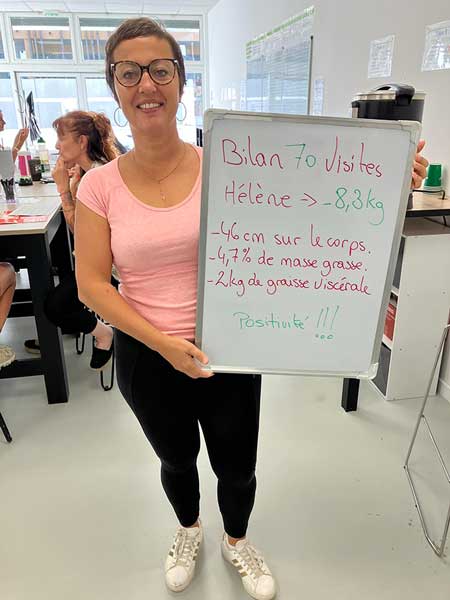 Bilan 70 visites
Hélène → -8,3kg
-46 cm sur le corps.
-4,7% de masse grasse.
-2kg de graisse viscérale
Positivité !!!